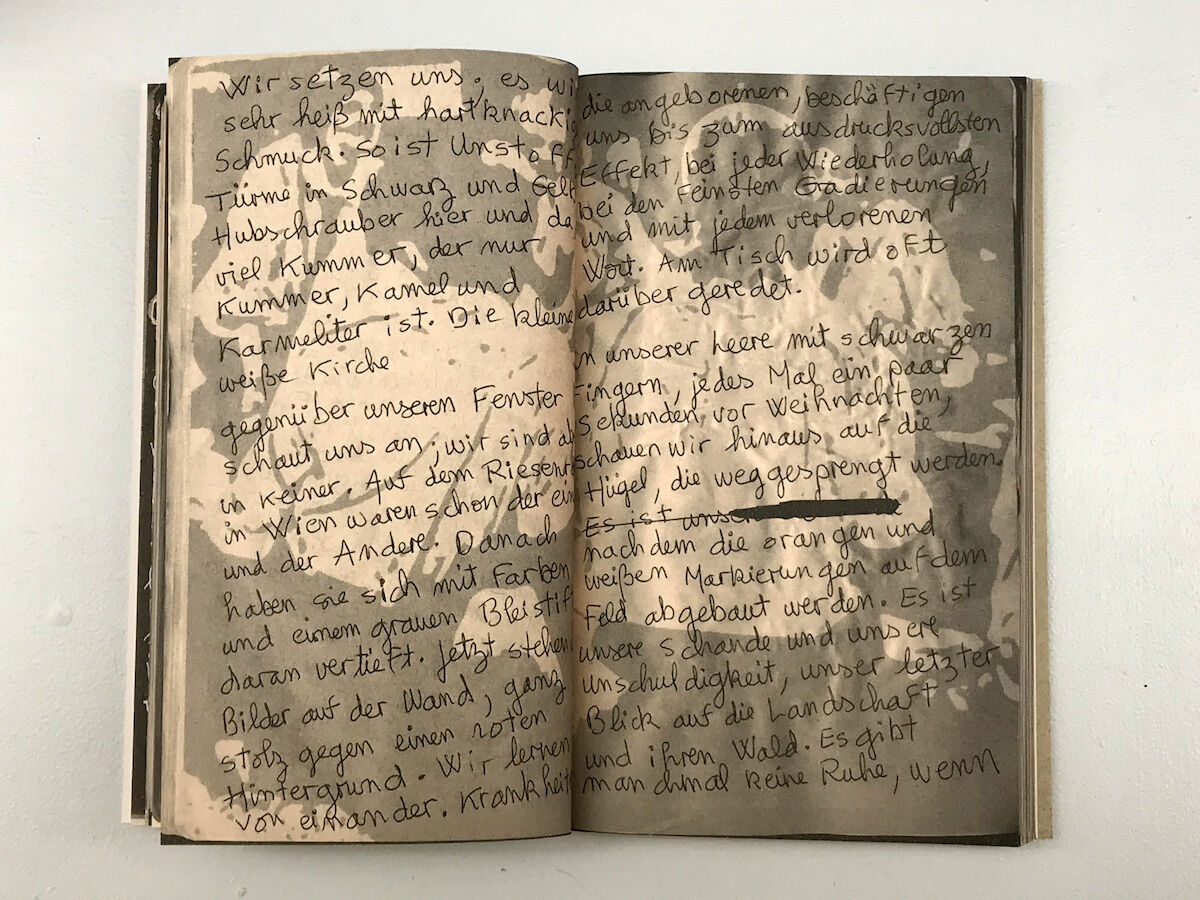 Wir setzen uns; es wi
sehr heiß mit hartknackig
Schmuck. So ist Unstoff
Türme in Schwarz und Gelb
Hubschrauber hier und da
viel Kummer, der nur
Kummer, Kamel und
Karmeliter ist. Die kleine
weiße Kirche
gegenüber unseren Fenster
schaut uns an; wir sind ab
in keiner. Auf dem Riesenr
in Wien waren schon der ein
und der Andere. Danach
haben sie sich mit Farben
und einem grauen Bleistift
daran vertieft. Jetzt stehen
Bilder auf der Wand, ganz
stolz gegen einen roten
Hintergrund. Wir lernen
von einander. Krankheite
die angeborenen, beschäftigen
uns bis zum ausdrucksvollsten
Effekt, bei jeder Wiederholung,
bei den feinsten Gadierungen
und mit jedem verlorenen
Wort. Am Tisch wird oft
darüber geredet.
In unserer heere mit schwarzen
Fingern, jedes Mal ein paar
Sekunden vor Weihnachten,
schauen wir hinaus auf die
Hügel, die weggesprengt werden.
Es ist unse
nachdem die orangen und
weißen Markierungen auf dem
Feld abgebaut werden. Es ist
unsere Schande und unsere
unschuldigkeit, unser letzter
Blick auf die Landschaft
und ihren Wald. Es gibt
manchmal keine Ruhe, wenn